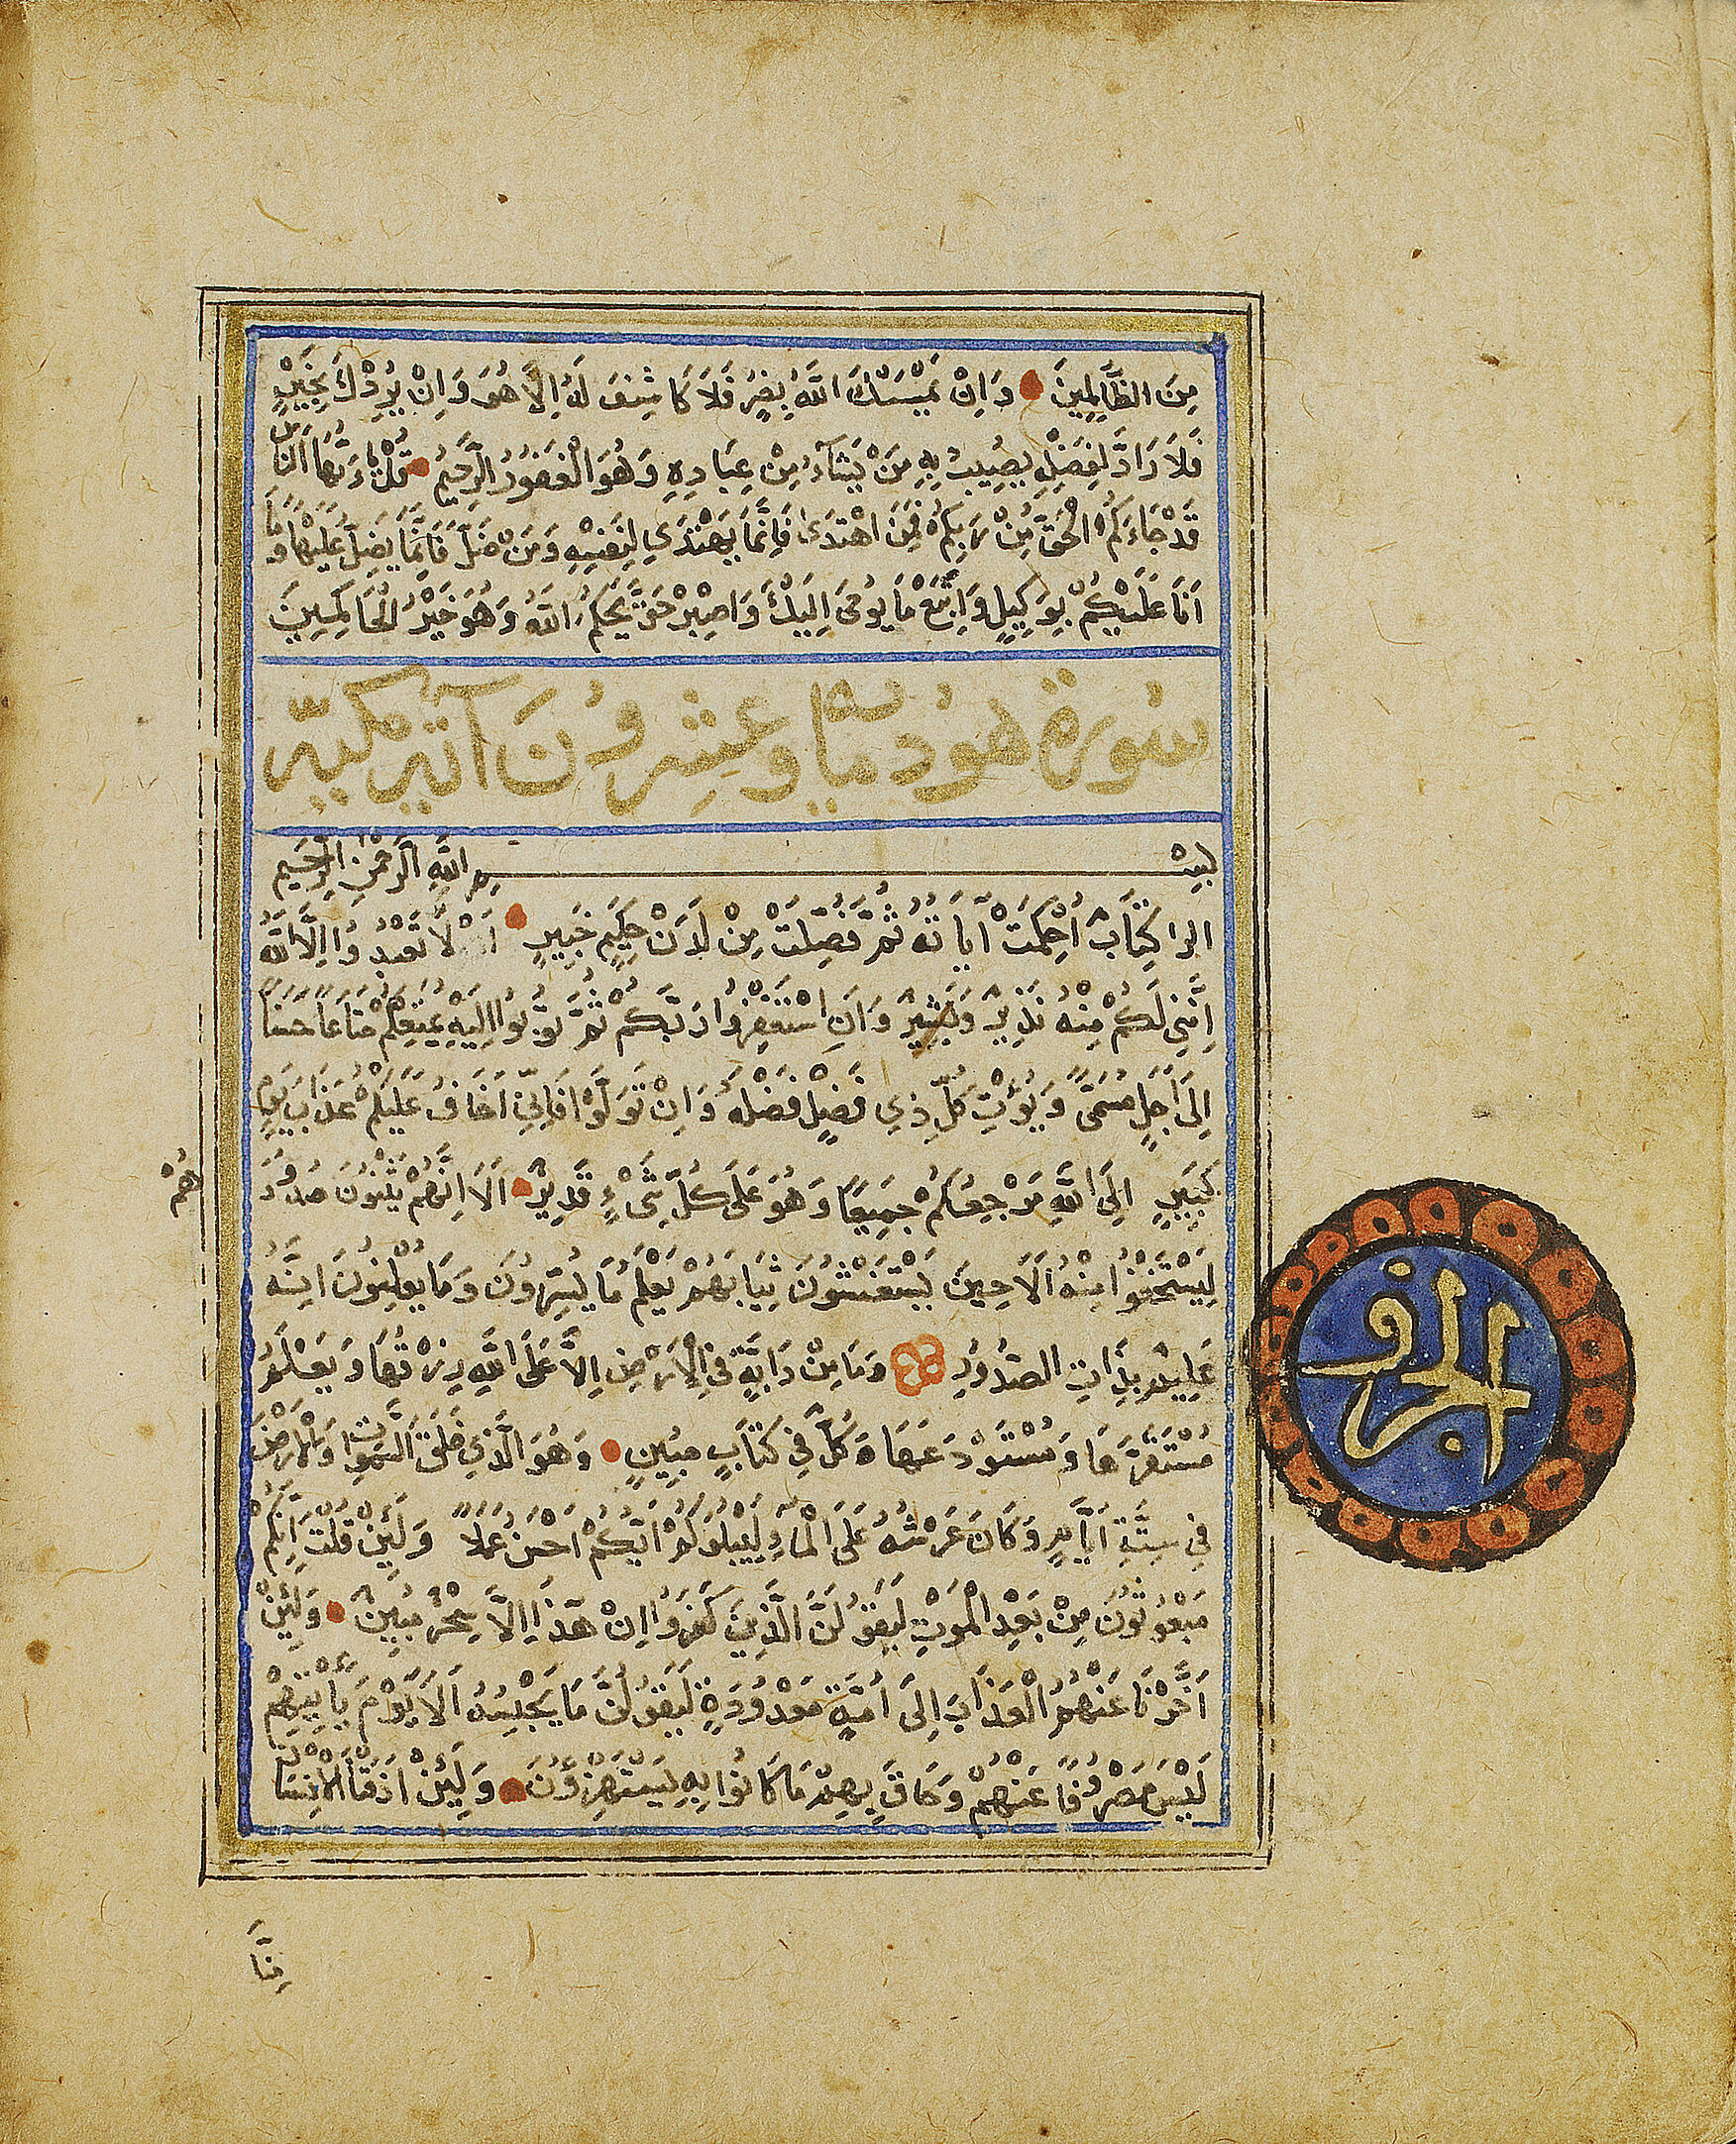 مِنَ الظَّالِمِينَ وَاِنْ يَمْسَسْكَ اللّٰهُ بِضُرٍّ فَلَا كَاشِفَ لَهُ اِلَّا هُوَ وَاِنْ يُرِدْكَ بِخَيْرٍ
فَلَا رَادَّ لِفَضْلِهِ يُصِيبُ بِهِ مَنْ يَشَآءُ مِنْ عِبَادِهِ وَهُوَ الْغَفُورُ الرَّحِيمُ قُلْ يَاءَيُّهَا النَّاسُ
قَدْ جَاءَكُمُ الْحَقُّ مِنْ رَبِّكُمْ فَمَنِ اهْتَدَىٰ فَاِنَّمَا يَهْتَدِي لِنَفْسِهِ وَمَنْ ضَلَّ فَاِنَّمَا يَضِلُّ عَلَيْهَا وَمَا
اَنَا عَلَيْكُمْ بِوَكِيلٍ وَاتَّبِعْ مَا يُوحَى اِلَيْكَ وَاصْبِرْ حَتَّى يَحْكُمَ اللّٰهُ وَهُوَ خَيْرُ الْحَاكِمِينَ
سُورَة هُود مائة وعِشرُونَ آية مكية
بِسْمِ اللّٰهِ الرَّحْمٰنِ الرَّحِيمِ
الرا كِتَابٌ اُحْكِمَتْ آيَاتُهُ ثُمَّ فُصِّلَتْ مِنْ لَدُنْ حَكِيمٍ خَبِيرٍ اَنْ لَا تَعْبُدُوا اِلَّا اللّٰهَ
اِنَّنِي لَكُمْ مِنْهُ نَذِيرٌ وَبَشِيرٌ وَاَنِ اسْتَغْفِرُوا رَبَّكُمْ ثُمَّ تُوبُوا اِلَيْهِ يُمَتِّعْكُمْ مَتَاعًا حَسَنًا
اِلَى اَجَلٍ مُسَمًّى وَيُؤْتِ كُلَّ ذِي فَضْلٍ فَضْلَهُ وَاِنْ تَوَلَّوْا فَاِنِّي اَخَافُ عَلَيْكُمْ عَذَابَ يَوْمٍ
كَبِيرٍ اِلَى اللّٰهِ مَرْجِعُكُمْ جَمِيعًا وَهُوَ عَلَى كُلِّ شَىْءٍ قَدِيرٌ اَلَا اِنَّهُمْ يَثْنُونَ صُدُورَ
هُمْ
لِيَسْتَخْفُوا مِنْهُ اَلَا حِينَ يَسْتَغْشُونَ ثِيَابَهُمْ يَعْلَمُ مَا يُسِرُّونَ وَمَا يُعْلِنُونَ اِنَّهُ
عَلِيمٌ بِذَاتِ الصُّدُورِ وَمَا مِنْ دَابَّةٍ فِي الْاَرْضِ اِلَّا عَلَى اللّٰهِ رِزْقُهَا وَيَعْلَمُ
مُسْتَقَرَّهَا وَمُسْتَوْدَعَهَا كُلٌّ فِي كِتَابٍ مُبِينٍ وَهُوَ الَّذِي خَلَقَ السَّمٰوَاتِ وَالْاَرْضَ
فِي سِتَّةِ اَيَّامٍ وَكَانَ عَرْشُهُ عَلَى الْمَاءِ لِيَبْلُوَكُمْ اَيُّكُمْ اَحْسَنُ عَمَلًا وَلَئِنْ قُلْتَ اِنَّكُمْ
مَبْعُوثُونَ مِنْ بَعْدِ الْمَوْتِ لَيَقُولَنَّ الَّذِينَ كَفَرُوا اِنْ هٰذَا اِلَّا سِحْرٌ مُبِينٌ وَلَئِنْ
اَخَّرْنَا عَنْهُمُ الْعَذَابَ اِلَى اُمَّةٍ مَعْدُودَةٍ لَيَقُولُنَّ مَا يَحْبِسُهُ اَلَا يَوْمَ يَأْتِيهِمْ
لَيْسَ مَصْرُوفًا عَنْهُمْ وَحَاقَ بِهِمْ مَا كَانُوا بِهِ يَسْتَهْزِؤُنَ وَلَئِنْ اَذَقْنَا الْاِنْسَانَ
مِنَّا